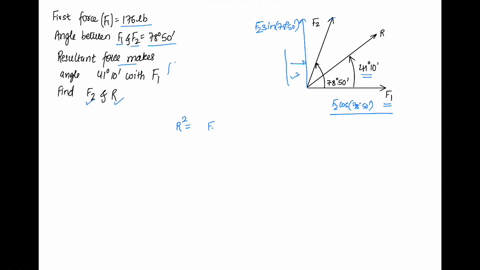 First force (F1) = 176 lb
Angle between F1 & F2 = 78°50'
Resultant force makes
angle 41°10' with F1
Find F2 & R
F2 sin(78°50')
F2
R
41°10'
78°50'
F1
F2 cos(78°50')
R² = F